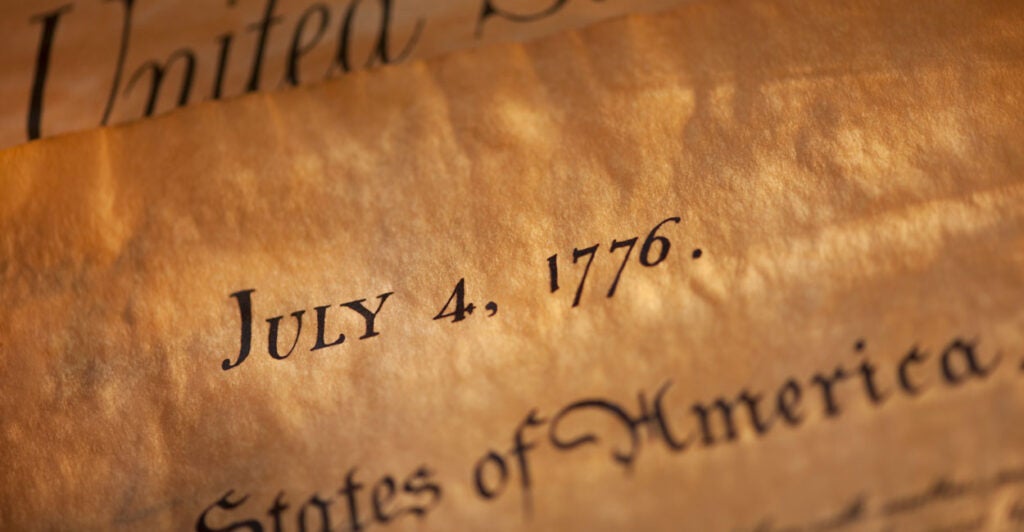 United S
July 4, 1776.
States of America